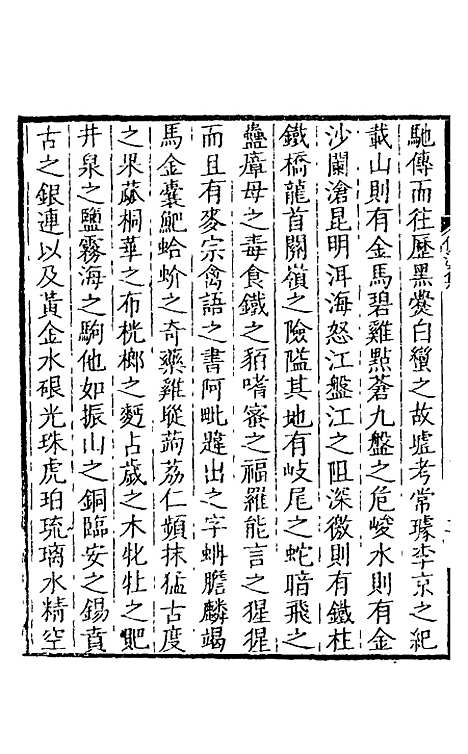 馳傳而往歷黑爨白蠻之故墟考常璩李京之紀
載山則有金馬碧雞點蒼九盤之危峻水則有金
沙闌滄昆明洱海怒江盤江之阻深徼則有鐵柱
鐵橋龍首關嶺之險隘其地有岐尾之蛇暗飛之
蠱瘴母之毒食鐵之貊嗜蜜之福羅能言之猩猩
而且有麥宗禽語之書阿毗韙出之字蚺膽麟竭
馬金囊鮀蛤蚧之奇藥雞㙡蒟蒻仁頻抹猛古度
之果虆桐華之布桄榔之麪占歲之木牝牡之𦘺
井泉之鹽霧海之駒他如振山之銅臨安之錫賁
古之銀連以及黃金水硍光珠虎珀琉璃水精空